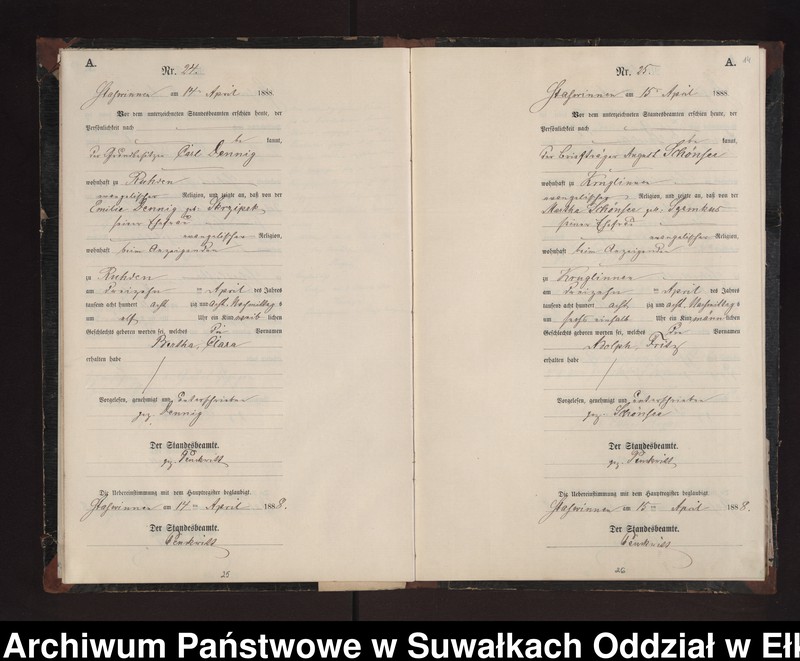 A.
Nr. 24.
Stassvinnen am 14ten April 1888.
Vor dem unterzeichneten Standesbeamten erschien heute, der
Persönlichkeit nach
be kannt,
der Grundbesitzer Carl Dennig
wohnhaft zu Ruhden
evangelischer Religion, und zeigte an, daß von der
Emilie Dennig geb. Skrzipek
seiner Ehefrau
evangelischer Religion,
wohnhaft beim Anzeigenden
zu Ruhden
am dreizehn ten April des Jahres
tausend acht hundert acht zig und acht Nachmittags
um elf Uhr ein Kind weib lichen
Geschlechts geboren worden sei, welches die Vornamen
Bertha, Clara
erhalten habe
Vorgelesen, genehmigt und unterschrieben
gez. Dennig
Der Standesbeamte.
gez.
Die Uebereinstimmung mit dem Hauptregister beglaubigt.
am 14ten April 1888.
Der Standesbeamte.
25
A.
14
Nr. 25.
am 15ten April 1888
Vor dem unterzeichneten Standesbeamten erschien heute, der
Persönlichkeit nach
be kannt,
der Briefträger August Schönsee
wohnhaft zu Kruglinnen
evangelischer Religion, und zeigte an, daß von der
Martha Schönsee geb.
seiner Ehefrau
evangelischer Religion,
wohnhaft beim Anzeigenden
zu Kruglinnen
am dreizehn ten April des Jahres
tausend acht hundert acht zig und acht Nachmittags
um sechs einhalb Uhr ein Kind männ lichen
Geschlechts geboren worden sei, welches die Vornamen
Adolph, Fritz
erhalten habe
Vorgelesen, genehmigt und unterschrieben
gez. Schönsee
Der Standesbeamte.
gez.
Die Uebereinstimmung mit dem Hauptregister beglaubigt.
am 15ten April 1888.
Der Standesbeamte.
26
Archiwum Państwowe w Suwałkach Oddział w Ełk